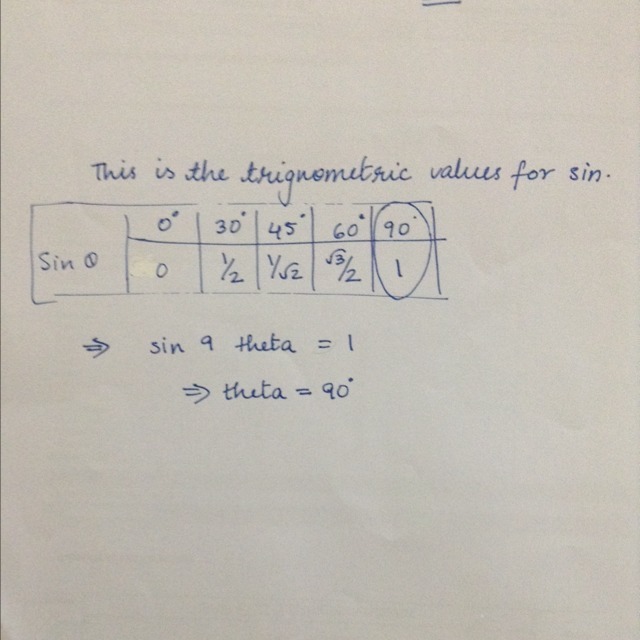 This is the trignometric values for sin.
0° 30° 45° 60° 90°
Sin θ 0 1/2 1/√2 √3/2 1
⇒ sin 9 theta = 1
⇒ theta = 90°